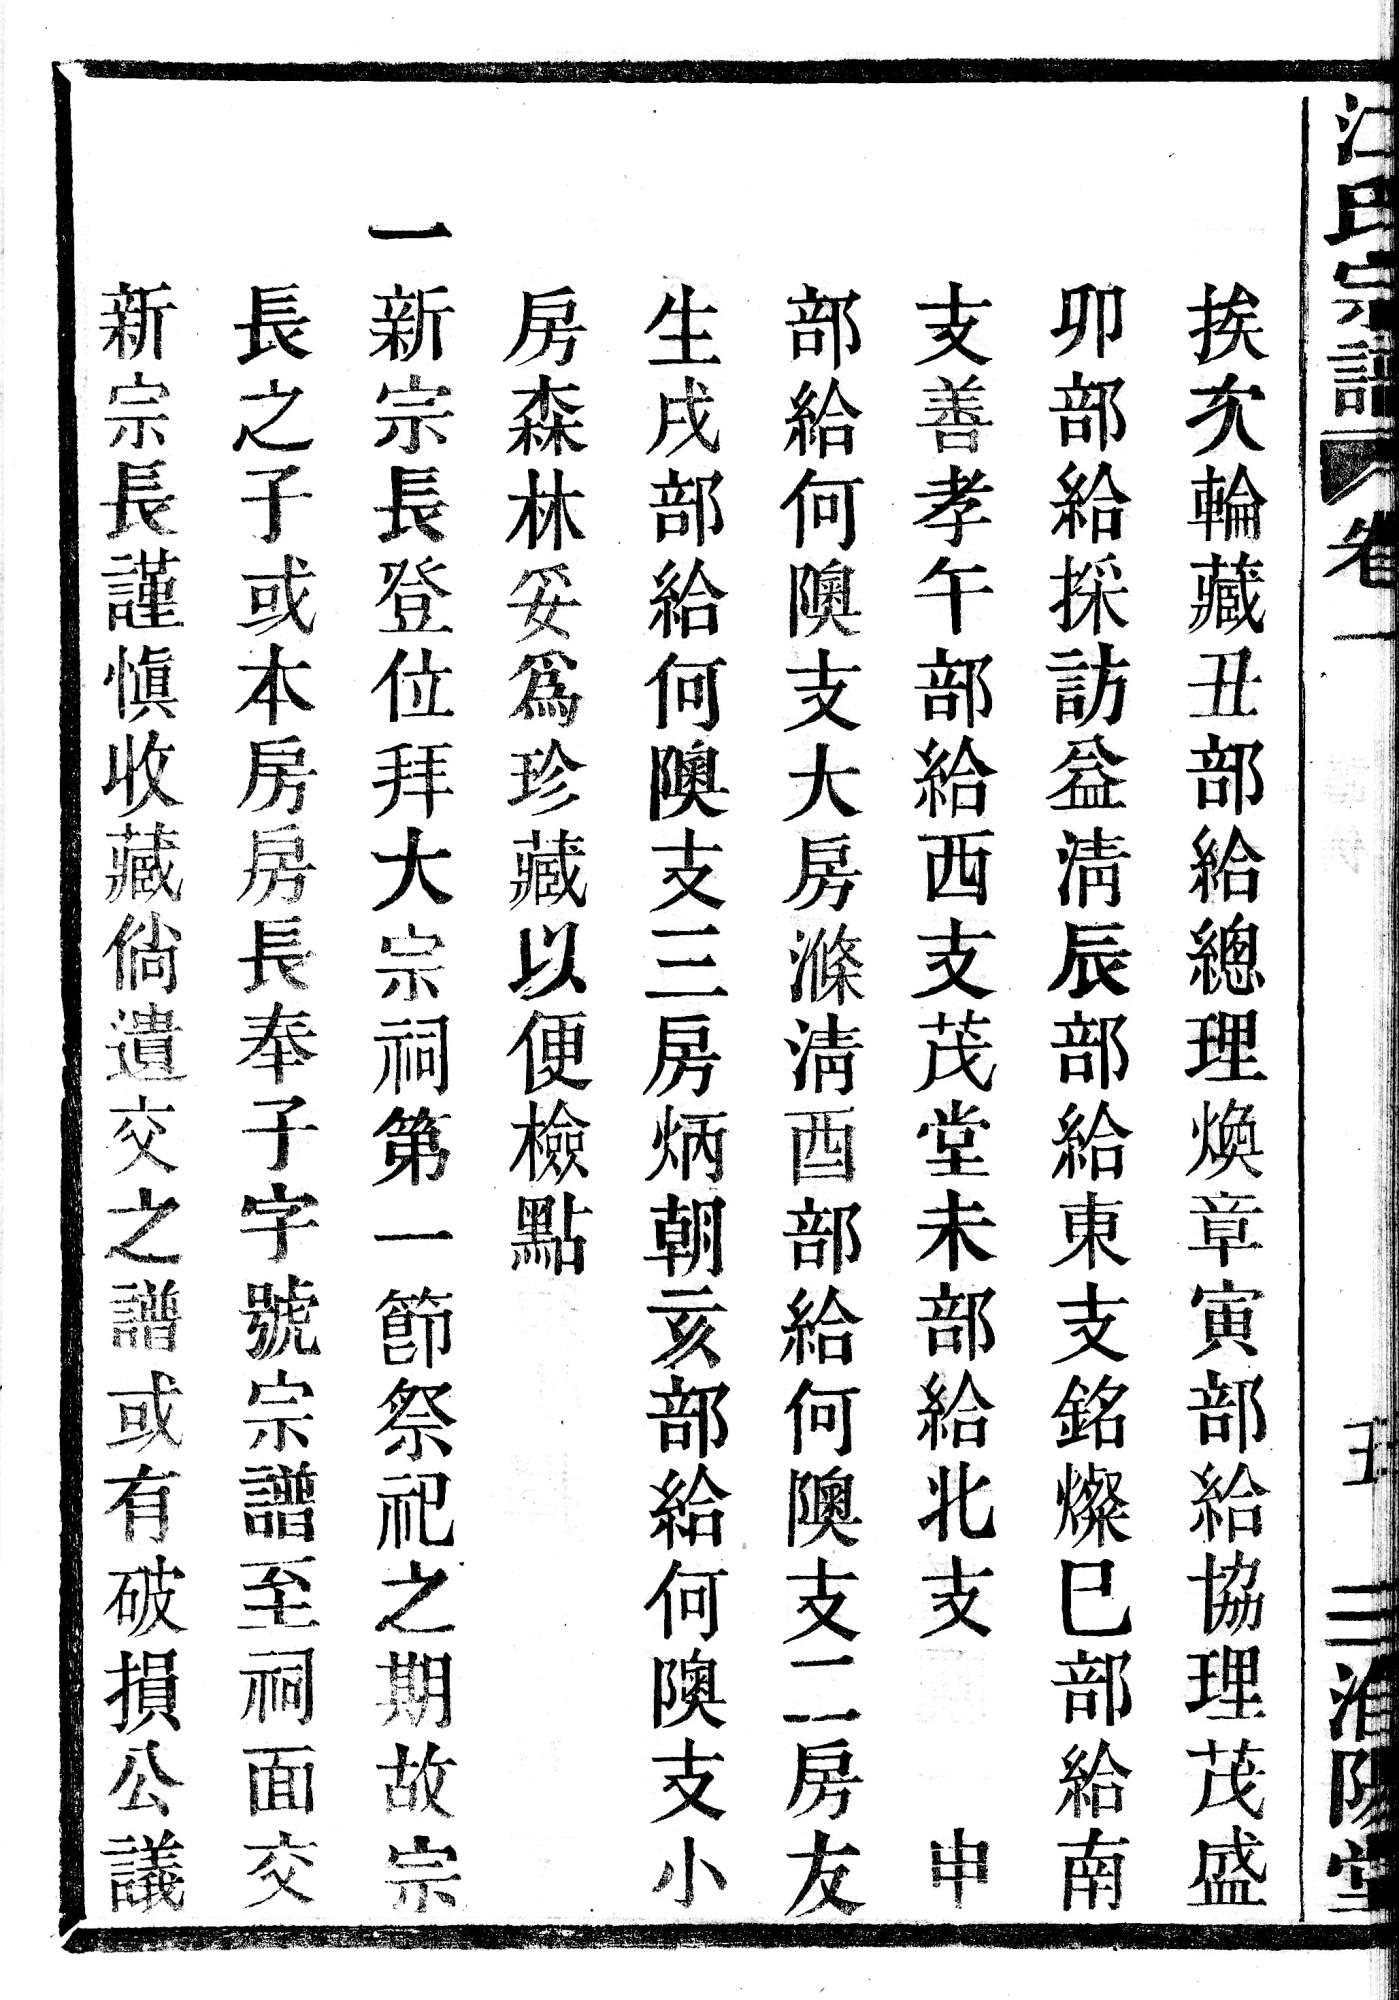 江氏宗譜 卷一 五 淮陽堂
挨次輪藏丑部給總理煥章寅部給協理茂盛
卯部給採訪益清辰部給東支銘燦巳部給南
支善孝午部給西支茂堂未部給北支 申
部給何隩支大房滌清酉部給何隩支二房友
生戌部給何隩支三房炳朝亥部給何隩支小
房森林妥爲珍藏以便檢點
一新宗長登位拜大宗祠第一節祭祀之期故宗
長之子或本房房長奉子字號宗譜至祠面交
新宗長謹慎收藏倘遺交之譜或有破損公議